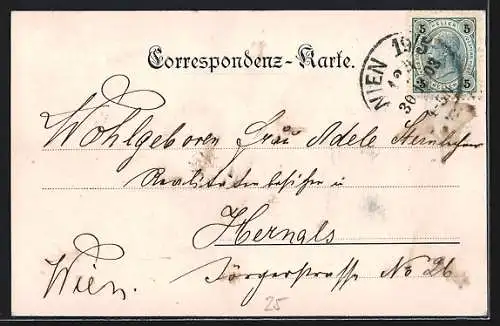 Correspondenz-Karte.
WIEN 19
30
5 5
HELLER
5 5
Wohlgeboren Frau Adele
Realitätenbesitzerin
Hernals
Wien. Jörgerstrasse No 26
25